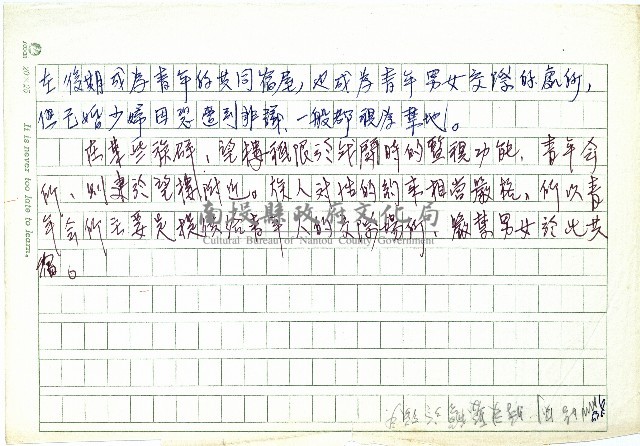 在後期成為青年的共同宿屋，也成為青年男女交際的處所，
但已婚少婦因恐遭到非議，一般都視為禁地。
在某些族群，望樓祗限於戰鬪時的警視功能，青年会
所，則建於望樓附近。族人对性的約束相當嚴格，所以青
年会所云要是提供給青年人的交際場所，嚴禁男女於此共
宿。
南投縣政府文化局
Cultural Bureau of Nantou County Government
It is never too late to learn.
10×20